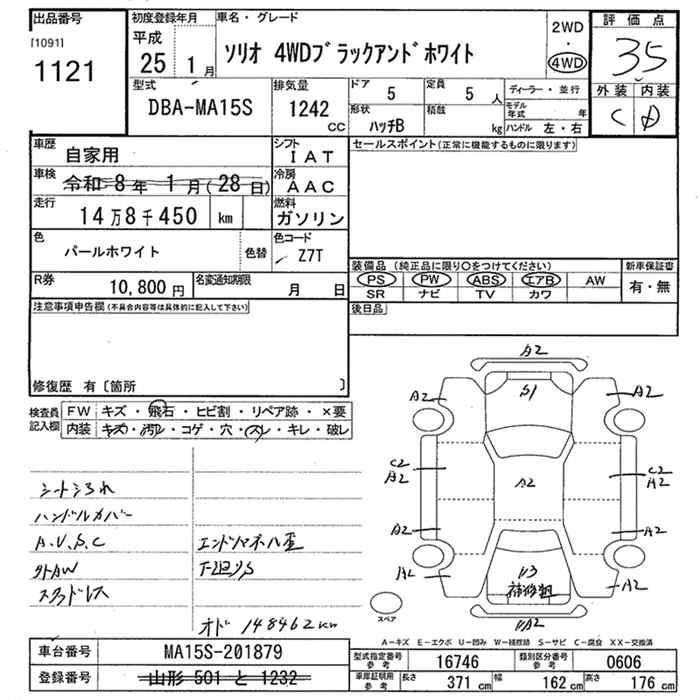 出品番号
[1091]
1121
初度登録年月
平成
25 1月
車名・グレード
ソリオ 4WDブラックアンドホワイト
2WD
・
4WD
評価点
3.5
外装 内装
C D
型式
DBA-MA15S
排気量
1242
CC
ドア
5
定員
5 人
形状
ハッチB
積載
kg
ディーラー・並行
モデル
年式 年
ハンドル 左・右
車歴
自家用
車検
令和 8年 1月(28日)
走行
14万8千450 km
シフト
IAT
冷房
AAC
燃料
ガソリン
色
パールホワイト
色替
色コード
Z7T
R券
10,800円
名変通知期限
月 日
セールスポイント(正常に機能するものに限ります)
装備品(純正品に限り○をつけてください)
PS PW ABS エアB AW
SR ナビ TV カワ
新車保証書
有・無
後日品
注意事項申告欄(不具合内容等は具体的に記入して下さい)
修復歴 有〔箇所 〕
検査員
記入欄
FW キズ・飛石・ヒビ割・リペア跡・×要
内装 キズ・汚レ・コゲ・穴・スレ・キレ・破レ
シートシワれ
ハンドルカバー
A.V.S.C
外AW
スタッドレス
エンドマネハ歪
下廻りS
オド 148462km
A2
S1
A2
A2
C2
A2
A2
C2
A2
A2
A2
A2
A2
A2
U3
補修粗
UA2
スペア
A-キズ E-エクボ U-凹み W-補修跡 S-サビ C-腐食 XX-交換済
車台番号
MA15S-201879
登録番号
山形 501 と 1232
型式指定番号
参考
16746
類別区分番号
参考
0606
車庫証明用
参考
長さ
371 cm
幅
162 cm
高さ
176 cm